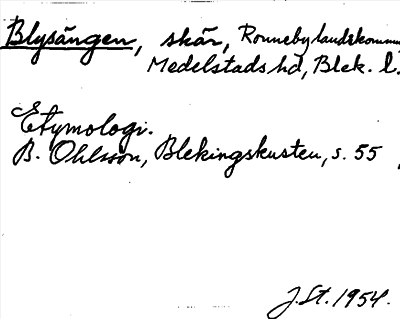 Blysängen, skär, Ronneby landskommun
Medelstads hd, Blek. l.
Etymologi.
B. Ohlsson, Blekingskusten, s. 55
J.St. 1954.